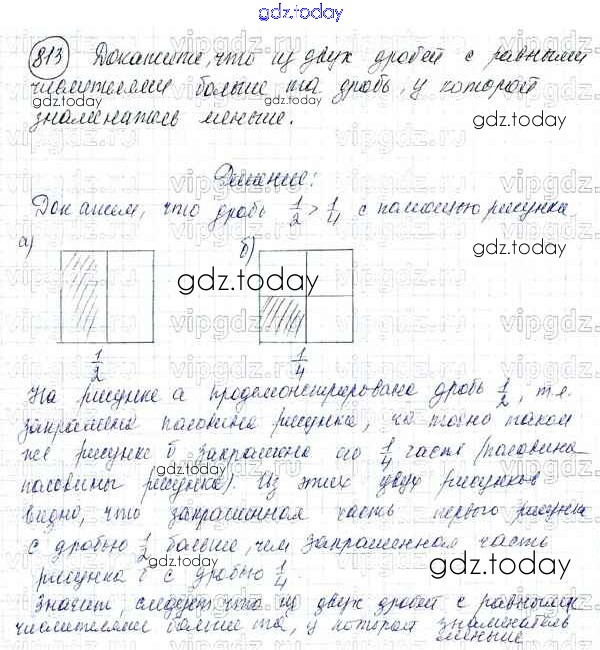 gdz.today
813 Докажите, что из двух дробей с равными
числителями больше та дробь, у которой
gdz.today
знаменатель меньше.
gdz.today
Решение:
Докажем, что дробь 1/2 > 1/4 с помощью рисунка
gdz.today
а) б)
gdz.today
1/2 1/4
На рисунке а продемонстрирована дробь 1/2, т.е.
закрашена половина рисунка, на точно таком
же рисунке б закрашена его 1/4 часть (половина
gdz.today
половины рисунка). Из этих двух рисунков
gdz.today
видно, что закрашенная часть первого рисунка
с дробью 1/2 больше, чем закрашенная часть
gdz.today
рисунка б с дробью 1/4.
gdz.today
Значит, следует что из двух дробей с равными
числителями больше та, у которой знаменатель
меньше